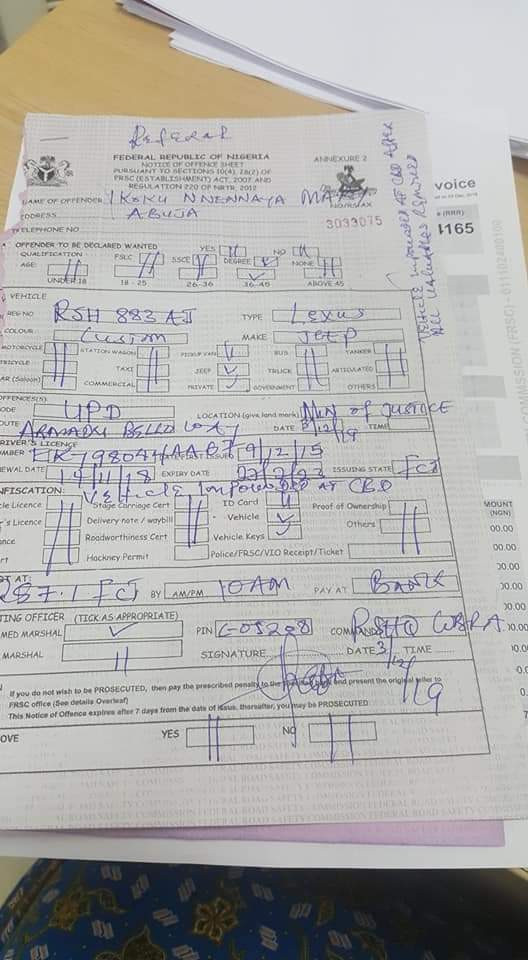 Referral
FEDERAL REPUBLIC OF NIGERIA
ANNEXURE 2
NOTICE OF OFFENCE SHEET
PURSUANT TO SECTIONS 10(4), 28(2) OF
FRSC (ESTABLISHMENT) ACT, 2007 AND
REGULATION 220 OF NRTR, 2012
NAME OF OFFENDER IKOKU NNENNAYA MARY
ADDRESS ABUJA
3033075
TELEPHONE NO
OFFENDER TO BE DECLARED WANTED YES NO
QUALIFICATION FSLC SSCE DEGREE NONE
AGE: UNDER 18 18 - 25 26-35 36-45 ABOVE 45
VEHICLE
REG NO RSH 883 AJ TYPE Lexus
COLOUR Custom MAKE Jeep
MOTORCYCLE STATION WAGON PICKUP VAN BUS TANKER
TRICYCLE TAXI JEEP TRUCK ARTICULATED
CAR (Saloon) COMMERCIAL PRIVATE GOVERNMENT OTHERS
OFFENCES(S)
CODE UPD LOCATION (give land mark) Min OF JUSTICE
ROUTE AHMADU BELLO WAY DATE 3/12/19 TIME
DRIVER'S LICENCE
ISSUED 9/12/15
RENEWAL DATE 14/11/18 EXPIRY DATE ISSUING STATE FCT
CONFISCATION: Vehicle Impounded AT CBD
Vehicle Licence Stage Carriage Cert ID Card Proof of Ownership
Driver's Licence Delivery note / waybill Vehicle Others
Roadworthiness Cert Vehicle Keys
Hackney Permit Police/FRSC/VIO Receipt/Ticket
AT: FCT BY AM/PM 10AM PAY AT BANK
OFFICER (TICK AS APPROPRIATE)
MARSHAL PIN COMMAND RSHQ
MARSHAL SIGNATURE DATE 3/12/19 TIME
If you do not wish to be PROSECUTED, then pay the prescribed penalty to the and present the original teller to
FRSC office (See details Overleaf)
This Notice of Offence expires after 7 days from the date of issue, thereafter, you may be PROSECUTED
YES NO
Vehicle impounded AT CBD After
All Valuables Removed
voice
(RRR)
4165
AMOUNT
(NGN)